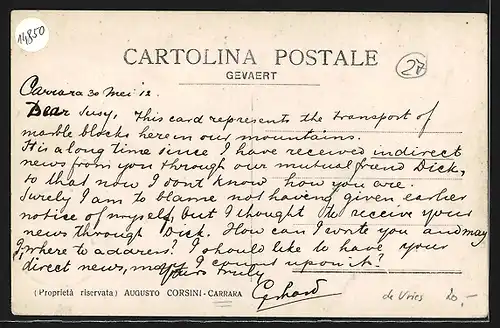 14850
CARTOLINA POSTALE
GEVAERT
27
Carrara 30 Mei 12.
Dear Susy, This card represents the transport of
marble blocks here in our mountains.
It is a long time since I have received indirect
news from you through our mutual friend Dick,
so that now I dont know how you are.
Surely I am to blame not having given earlier
notice of myself, but I thought to receive your
news through Dick. How can I write you and may
I, where to address? I should like to have your
direct news, may I count upon it?
Yours truly
Gerhard
(Proprietà riservata) AUGUSTO CORSINI-CARRARA
de Vries 20,-